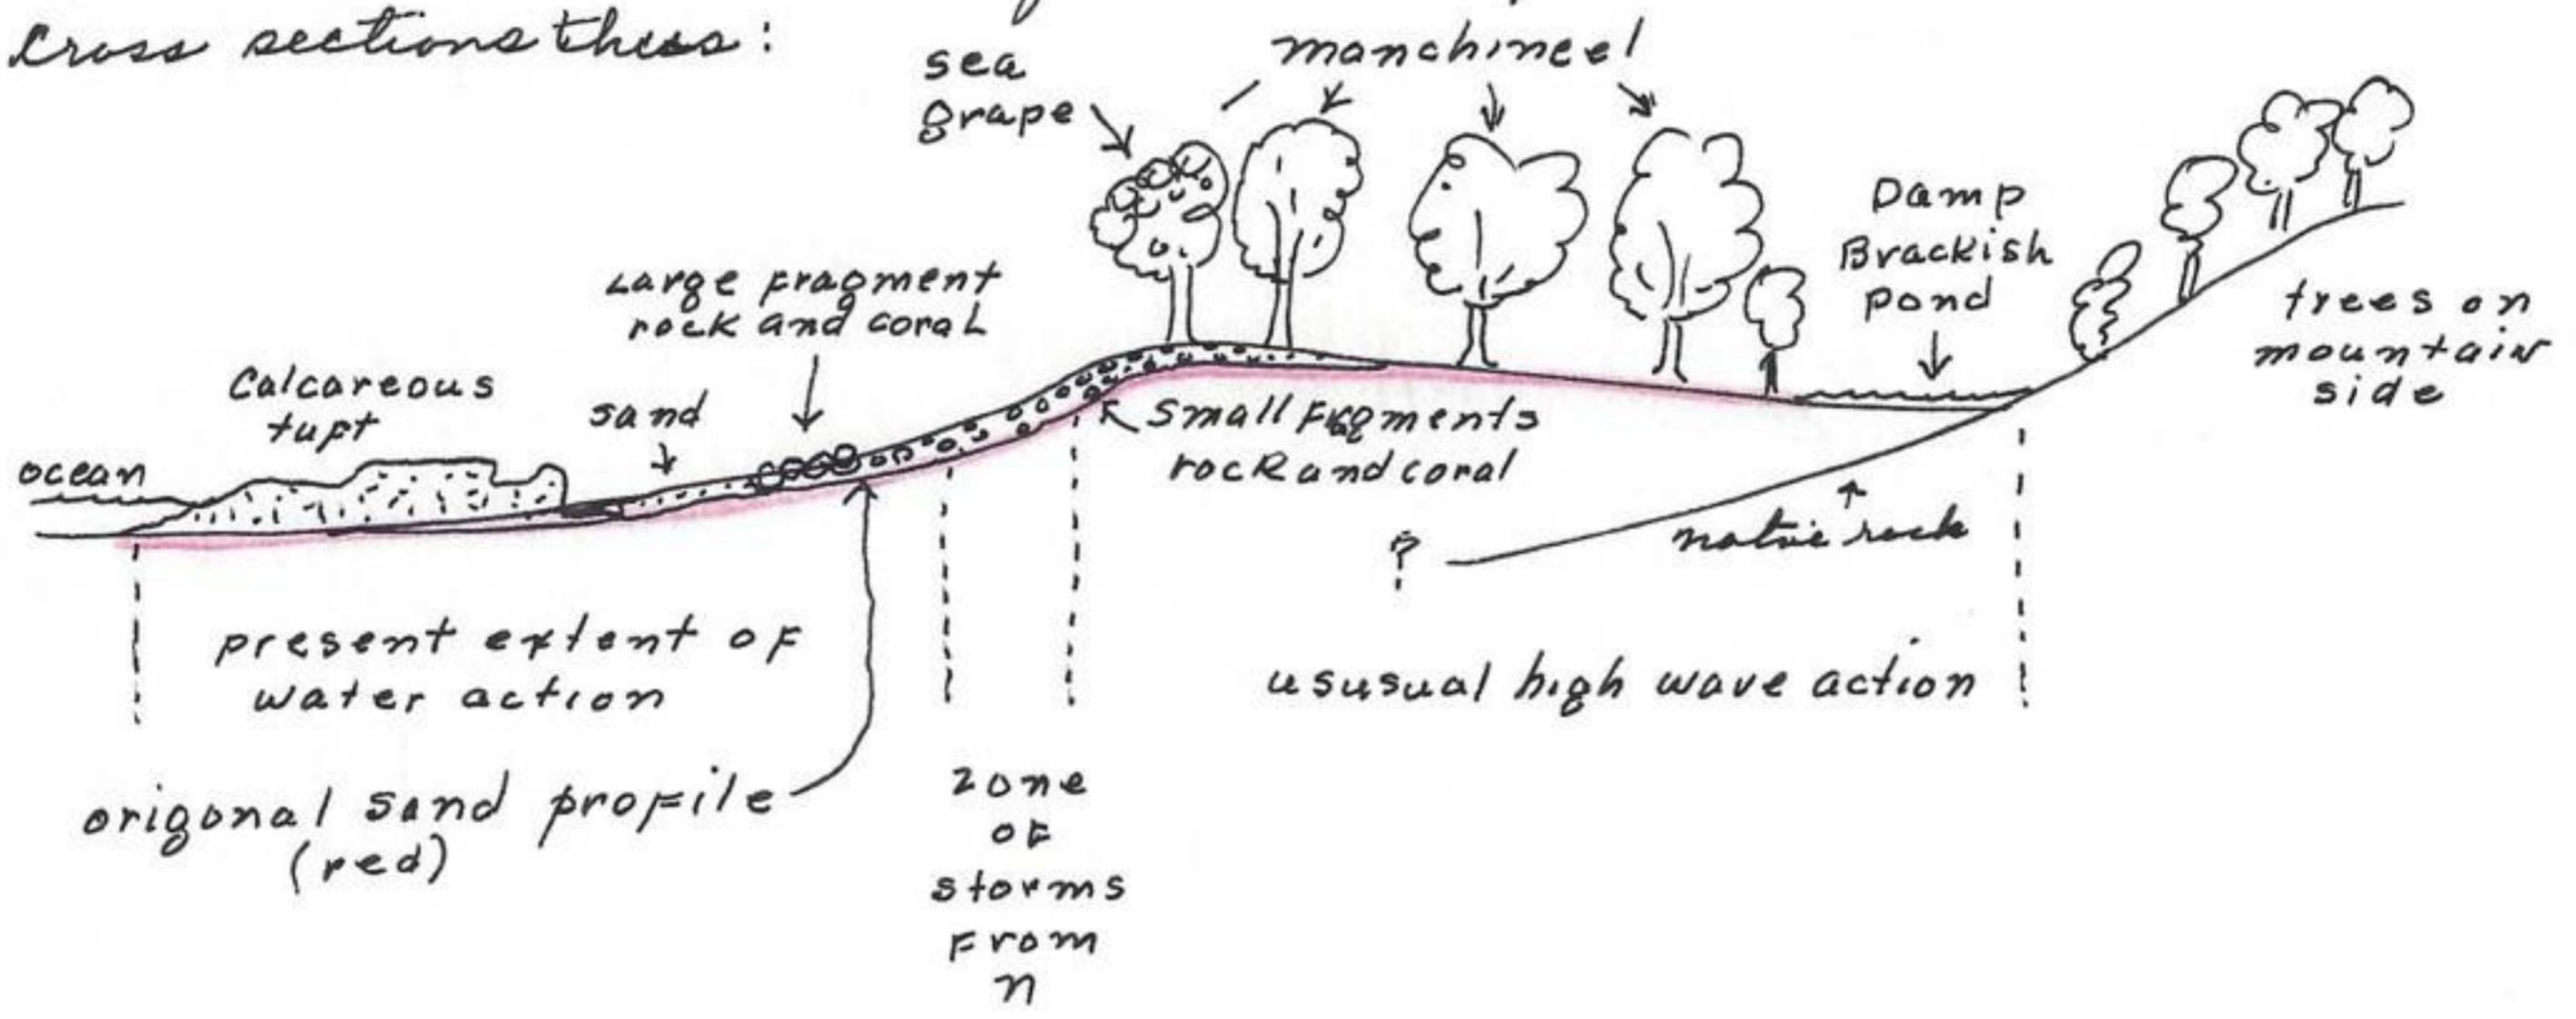 cross sections thus:
sea
grape
manchineel
Damp
Brackish
pond
trees on
mountain
side
Large Fragment
rock and coral
Calcareous
tuft
sand
ocean
small Fragments
rock and coral
?
native rock
present extent of
water action
ususual high wave action
origonal sand profile
(red)
zone
of
storms
From
n